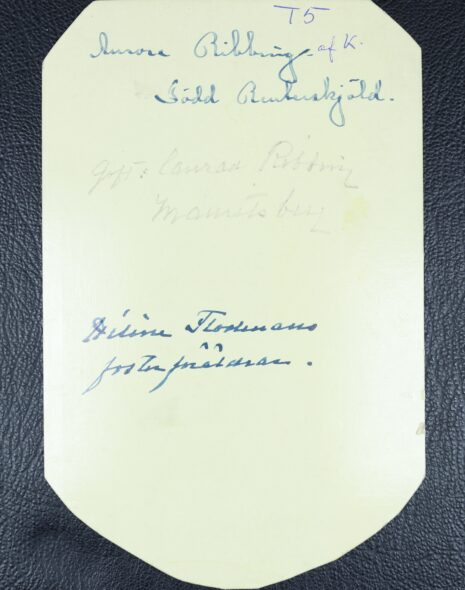 T5
Aurora Ribbing af K.
Född Reuterskjöld.
Gift: Conrad Ribbing
Mauritsberg
Hélène Flodemans
fosterföräldrar.